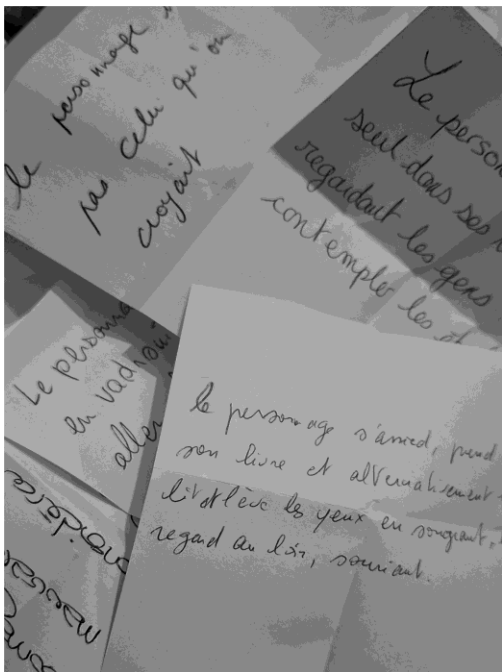 le personnage
pas celui qu'on
croyait
Le person
seul dans ses
regardant les gens
contempler les
Le personna
en vadroui
aller
le personnage s'assied, prend
son livre et alternativement
lit et lève les yeux en songeant,
regard au loin, souriant.